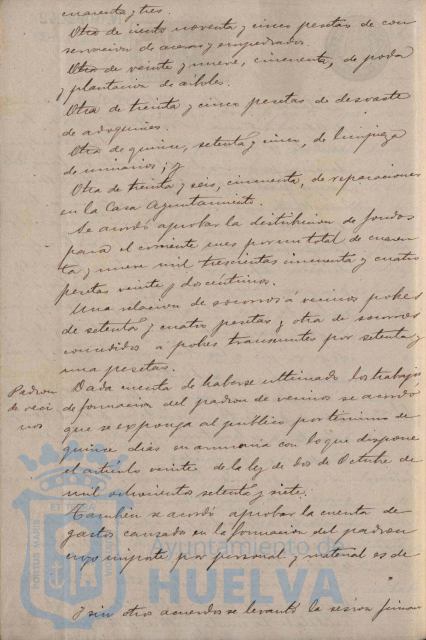 cuarenta y tres.
Otra de ciento noventa y cinco pesetas de con
servacion de aceras y empedrados.
Otra de veinte y nueve, cincuenta, de poda
y plantacion de arboles.
Otra de treinta y cinco pesetas de desvaste
de adoquines.
Otra de quince, setenta y cinco, de limpieza
de urinarios; y
Otra de treinta y seis, cincuenta, de reparaciones
en la Casa Ayuntamiento.
Se acordó aprobar la distribucion de fondos
para el corriente mes por un total de cuaren
ta y nueve mil trescientas cincuenta y cuatro
pesetas veinte y dos centimos.
Una relacion de socorros á vecinos pobres
de setenta y cuatro pesetas y otra de socorros
concedidos a pobres transeuntes por setenta y
una pesetas.
Padron
de veci
nos
Dada cuenta de haberse ultimado los trabajos
de formacion del padron de vecinos se acordó
que se exponga al público por término de
quince dias en armonia con lo que dispone
el artículo veinte de la ley de dos de Octubre de
mil ochocientos setenta y siete.
Tambien se acordó aprobar la cuenta de
gastos causados en la formacion del padron
cuyo importe por personal y material es de
Y sin otros acuerdos se levantó la sesion firman
PORTUS MARIS
ET TERRAE
Ayuntamiento de
HUELVA